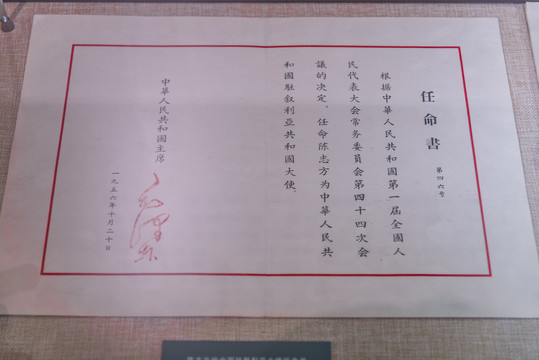 任命書
第四六号
根据中華人民共和國第一屆全國人
民代表大会常务委員会第四十四次会
議的决定，任命陈志方为中華人民共
和國駐叙利亞共和國大使。
中華人民共和國主席
毛澤东
一九五六年十月二十日